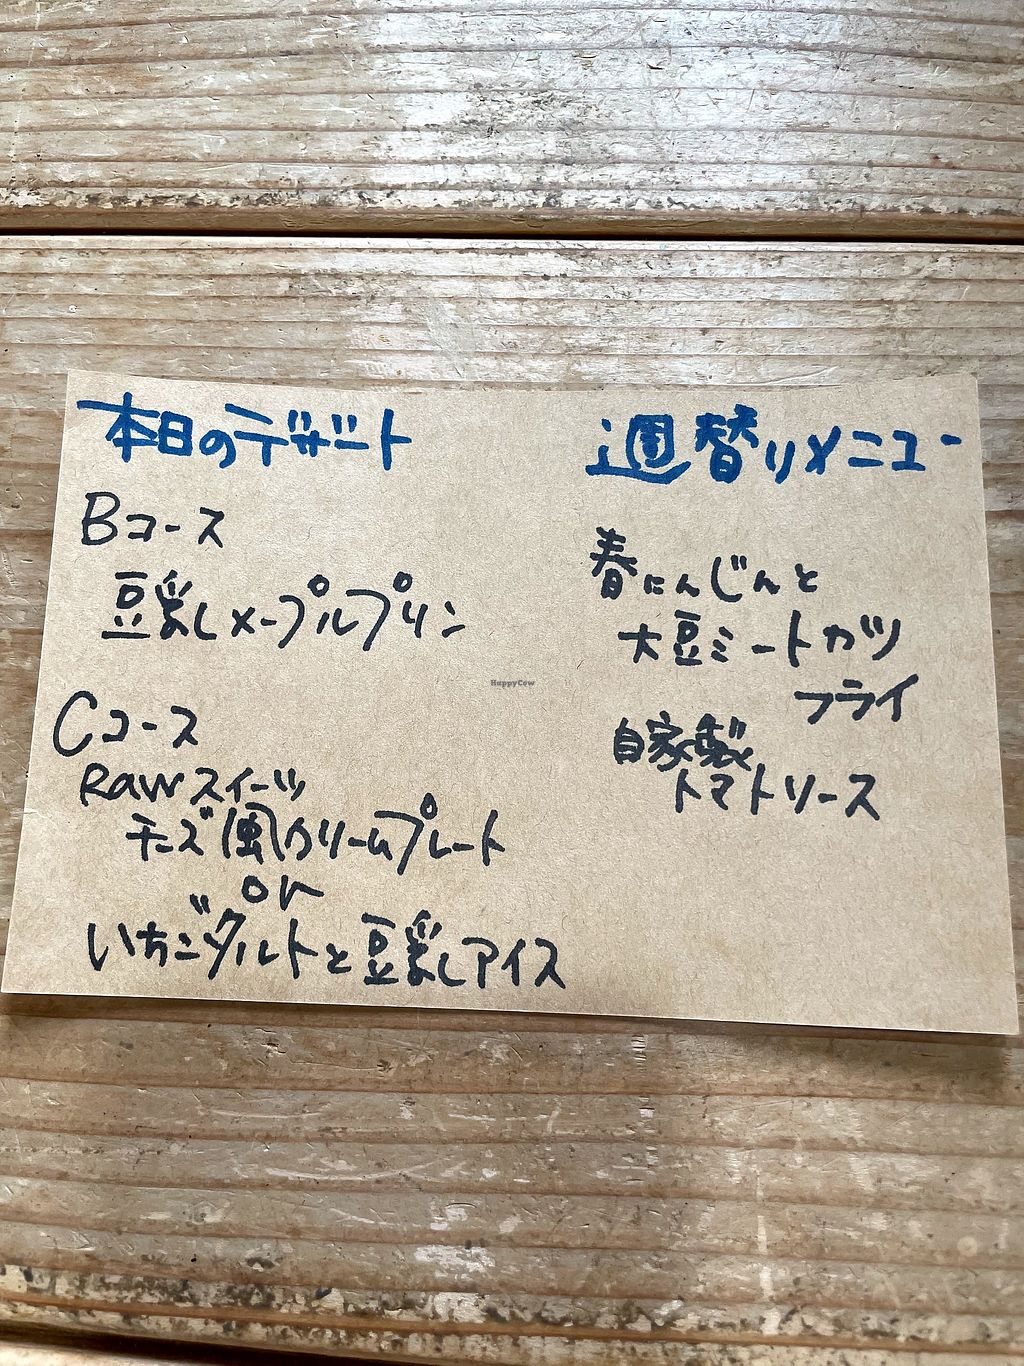 本日のデザート
Bコース
豆乳メープルプリン
Cコース
Rawスイーツ
チーズ風クリームプレート
or
いちごタルトと豆乳アイス
週替りメニュー
春にんじんと
大豆ミートカツ
フライ
自家製
トマトソース
HappyCow